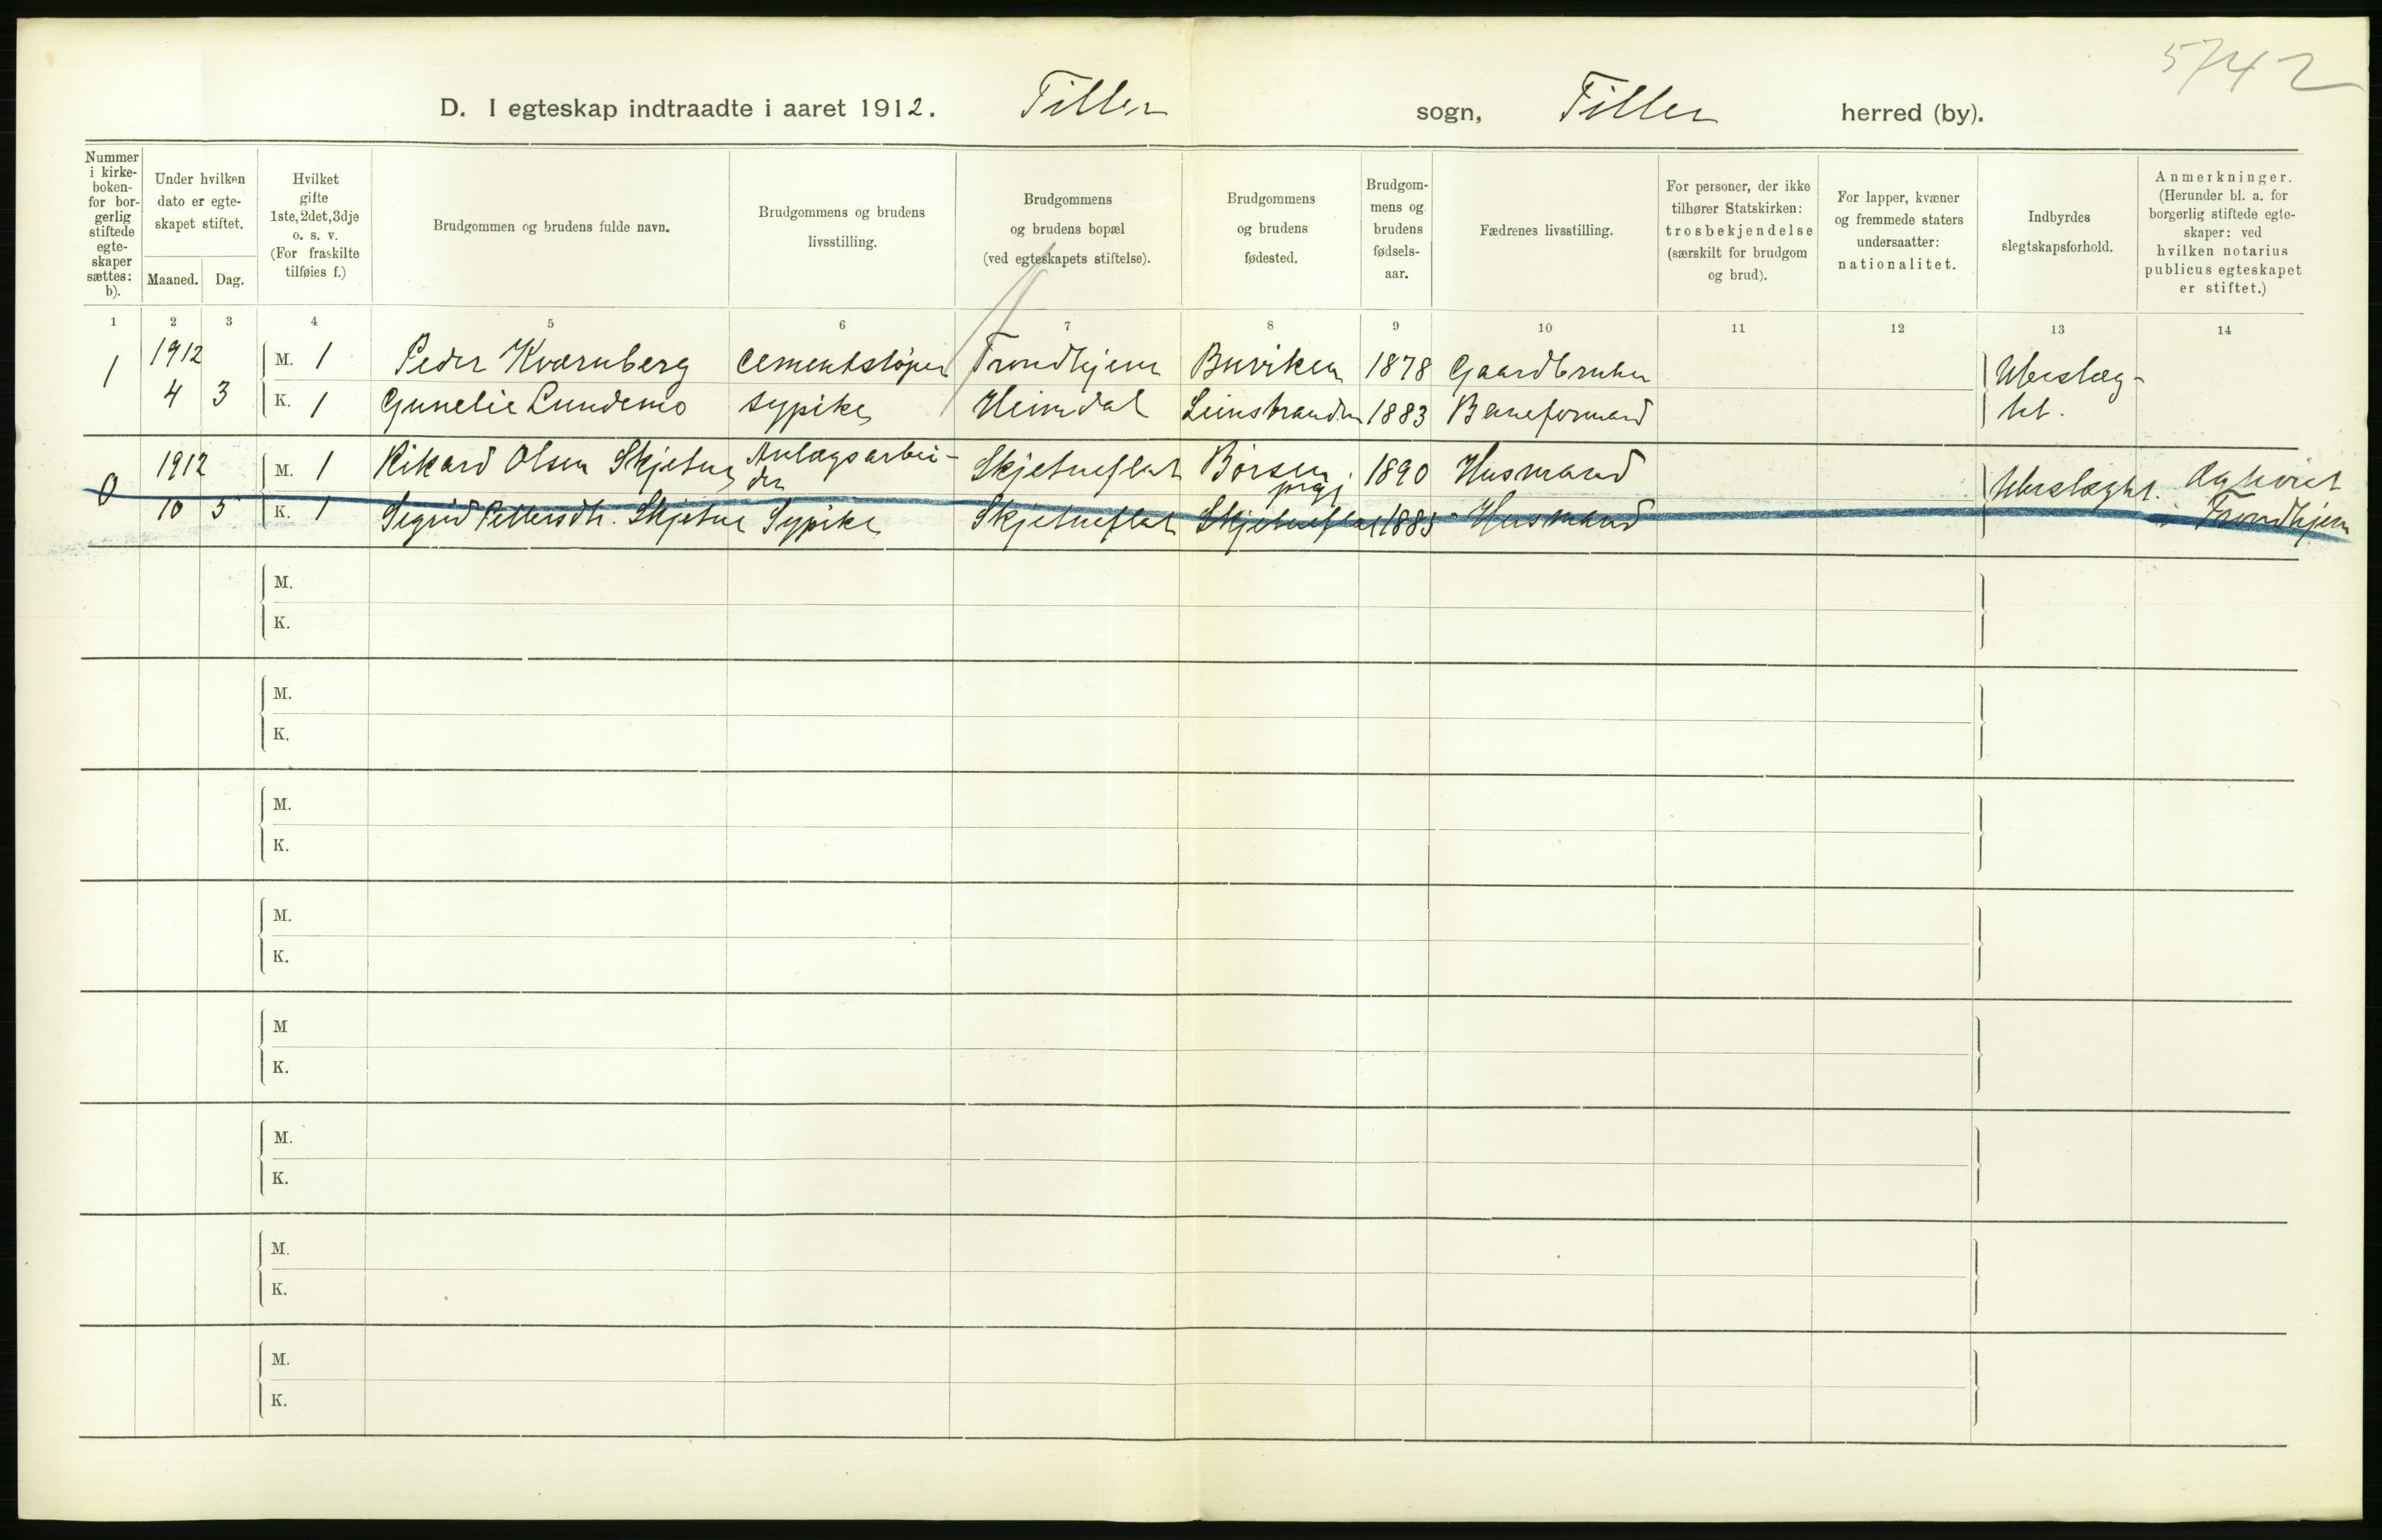 5742
D. I egteskap indtraadte i aaret 1912. Tiller sogn, Tiller herred (by).
Nummer i kirke- boken- for bor- gerlig stiftede egte- skaper sættes: b).
Under hvilken dato er egte- skapet stiftet.
Maaned. Dag.
Hvilket gifte 1ste, 2det, 3dje o. s. v. (For fraskilte tilføies f.)
Brudgommen og brudens fulde navn.
Brudgommens og brudens livsstilling.
Brudgommens og brudens bopæl (ved egteskapets stiftelse).
Brudgommens og brudens fødested.
Brudgom- mens og brudens fødsels- aar.
Fædrenes livsstilling.
For personer, der ikke tilhører Statskirken: trosbekjendelse (særskilt for brudgom og brud).
For lapper, kvæner og fremmede staters undersaatter: nationalitet.
Indbyrdes slegtskapsforhold.
Anmerkninger. (Herunder bl. a. for borgerlig stiftede egte- skaper: ved hvilken notarius publicus egteskapet er stiftet.)
1 2 3 4 5 6 7 8 9 10 11 12 13 14
1 1912 M. 1 Peder Kvarnberg Cementstøper Trondhjem Buviken 1878 Gaardbruker Ubeslæg-
4 3 K. 1 Gunelie Lundemo sypike Heimdal Leinstranden 1883 Baneformand tet.
0 1912 M. 1 Rikard Olsen Skjetne Anlægsarbei- der Skjetneflat Börsen prgj. 1890 Husmand Ubeslægt.
10 5 K. 1 Sigrid Pettersdtr. Skjetne Sypike Skjetneflat Skjetneflat 1885 Husmand i Trondhjem
M.
K.
M.
K.
M.
K.
M.
K.
M
K.
M.
K.
M.
K.
M.
K.